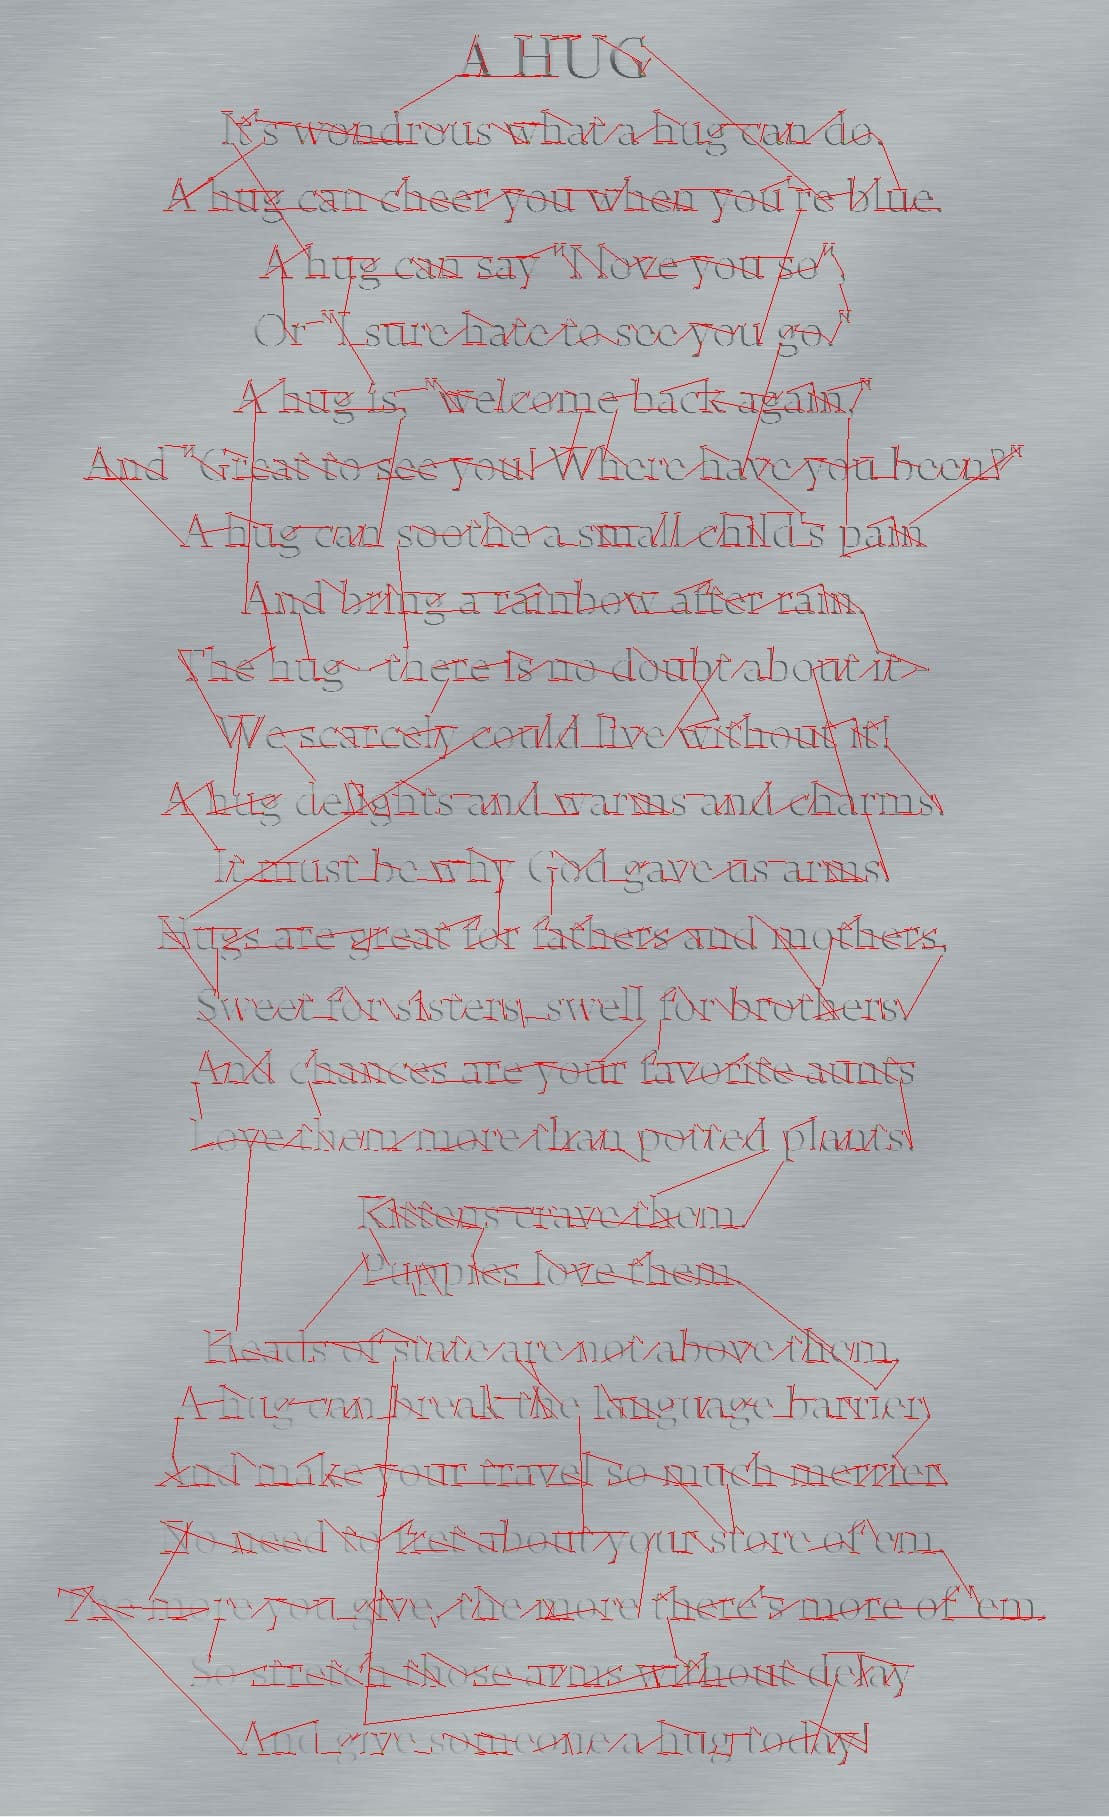 A HUG
It's wondrous what a hug can do.
A hug can cheer you when you're blue.
A hug can say "I love you so",
Or "I sure hate to see you go."
A hug is, "welcome back again,"
And "Great to see you! Where have you been?"
A hug can soothe a small child's pain
And bring a rainbow after rain.
The hug - there is no doubt about it-
We scarcely could live without it!
A hug delights and warms and charms;
It must be why God gave us arms.
Hugs are great for fathers and mothers,
Sweet for sisters, swell for brothers;
And chances are your favorite aunts
Love them more than potted plants.
Kittens crave them.
Puppies love them.
Heads of state are not above them.
A hug can break the language barrier,
And make your travel so much merrier.
No need to fret about your store of 'em.
The more you give, the more there's more of 'em.
So stretch those arms without delay
And give someone a hug today!